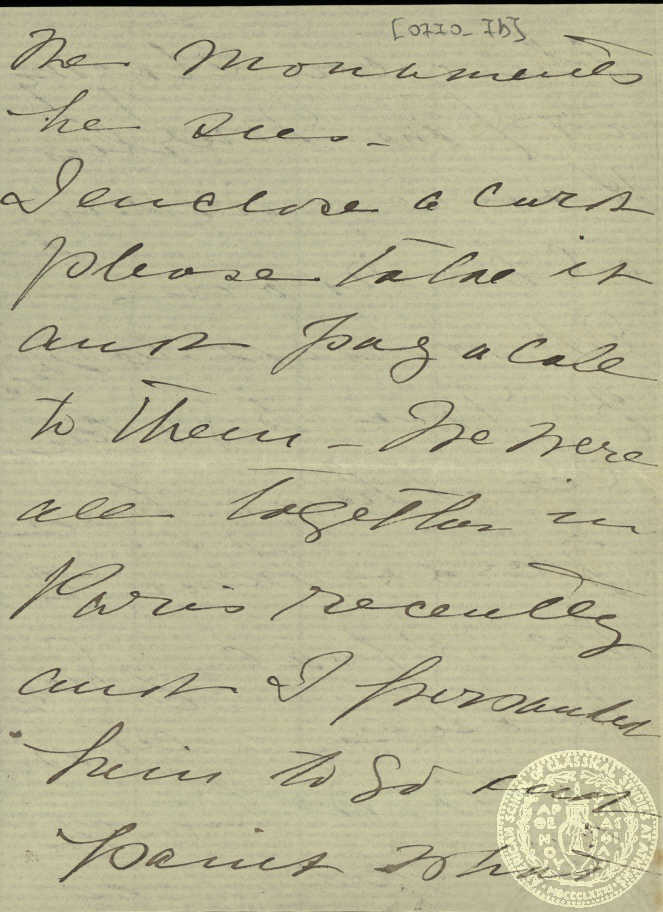 the monuments
he sees -
I enclose a card
please take it
and pay a call
to them - We were
all together in
Paris recently
and I persuaded
him to go and
paint what